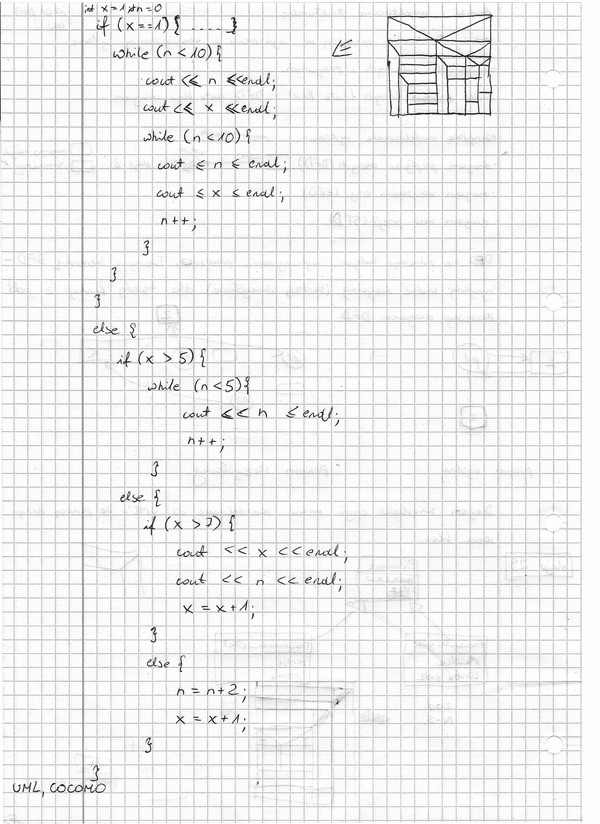 int x = 1, n = 0
if (x == 1) { ...... }
while (n < 10) {
cout << n << endl;
cout << x << endl;
while (n < 10) {
cout ≤ n ≤ endl;
cout ≤ x ≤ endl;
n++;
}
}
}
else {
if (x > 5) {
while (n < 5) {
cout << n ≤ endl;
n++;
}
else {
if (x > 7) {
cout << x << endl;
cout << n << endl;
x = x + 1;
}
else {
n = n + 2;
x = x + 1;
}
}
UML, COCOMO